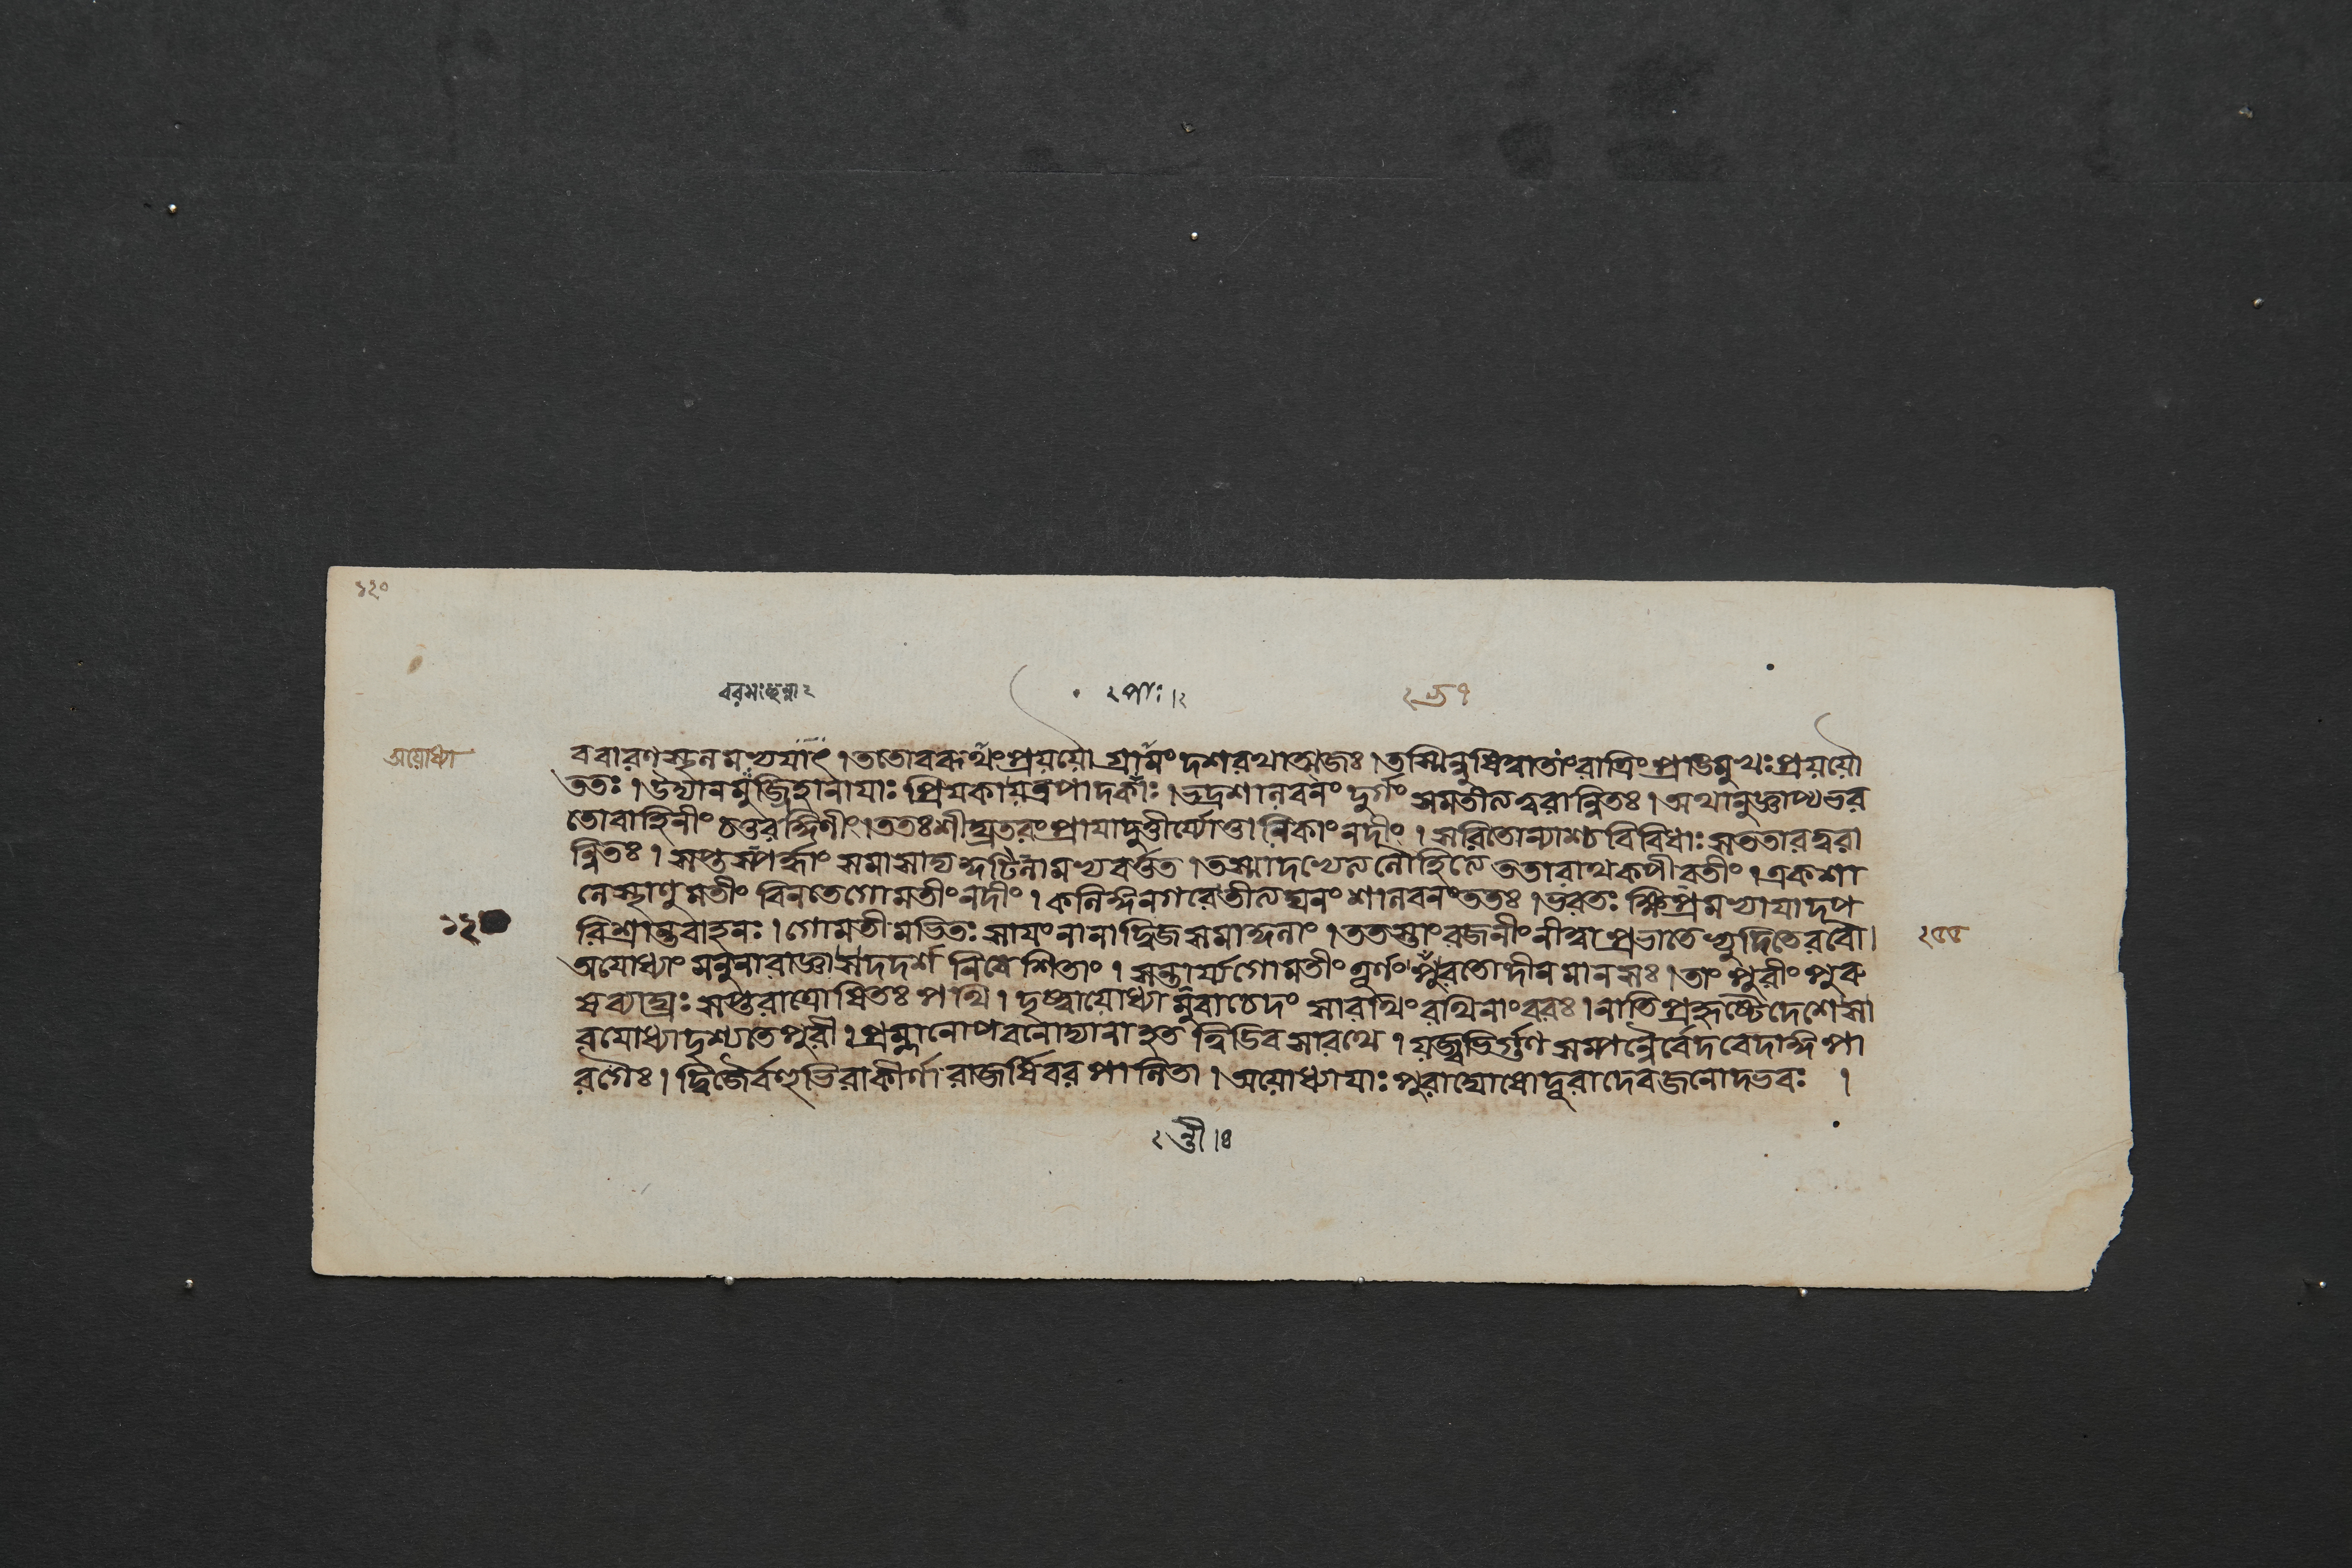 ১২০
বরমঃহুন্না২
২পাঃ।২
২ত্র্র১
অয়োধ্যা
ববারণস্থনমভ্যযাৎ।ততোবরূথংপ্রযযৌ গ্রামংদশরথাত্মজঃ।তস্মিন্নুষিত্বাতাংরাত্রিংপ্রাঙমুখঃপ্রযযৌ
ততঃ।উদ্যানমুজ্জিহানাযাঃ প্রিযকাযত্রপাদকাঃ।ভদ্রশালবনং দুর্গং সমতীত্যত্বরান্বিতঃ।অথানুজ্ঞাপ্যভর
তোবাহিনীং চতুরঙ্গিণীং।ততঃশীঘ্রতরংপ্রাযাদুত্তীর্য্যোত্তানিকাংনদীং।সরিতোন্যাশ্চবিবিধাঃসততারত্বরা
ন্বিতঃ।সপ্তস্পর্দ্ধাং সমাসাদ্যন্দটিনামভ্যবর্ত্তত।তস্মাদখেলনলৌহিত্যে ততারাথকপীবতীং।একশা
লেস্থাণুমতীং বিনতেগোমতীংনদীং।কলিঙ্গনগরেতীত্যঘনং শালবনংততঃ।ভরতঃ ক্ষিপ্রমভ্যাযাদপ
রিশ্রান্তবাহনঃ।গোমতীমভিতঃ সাযংনানাদ্বিজসমাকুলাং।ততস্তাংরজনীংনীত্বাপ্রভাতেভ্যুদিতেরবৌ।
২৫৫
অযোধ্যাং মনুনারাজ্ঞাসদদর্শ নিবেশিতাং।সন্তার্য্যগোমতীং তূর্ণং পুরতোদীনমানসঃ।তাং পুরীং পুরু
ষব্যাঘ্রঃ সপ্তরাত্রোষিতঃ পথি।দৃষ্ট্বাযোধ্যামুবাচেদং সারথিং রথিনাংবরঃ।নাতিপ্রহৃষ্টেদেশেসা
রযোধ্যাদৃশ্যতেপুরী।প্রম্লানোপবনোদ্যানাহতত্বিডিবসারথে।যজ্বভির্গুণসম্পন্নৈর্বেদবেদাঙ্গপা
রগৈঃ।দ্বিজৈর্বহুভিরাকীর্ণা রাজর্ষিবরপালিতা।অযোধ্যাযাঃ পুরাঘোষোদূরাদেবজনোদ্ভবঃ ।